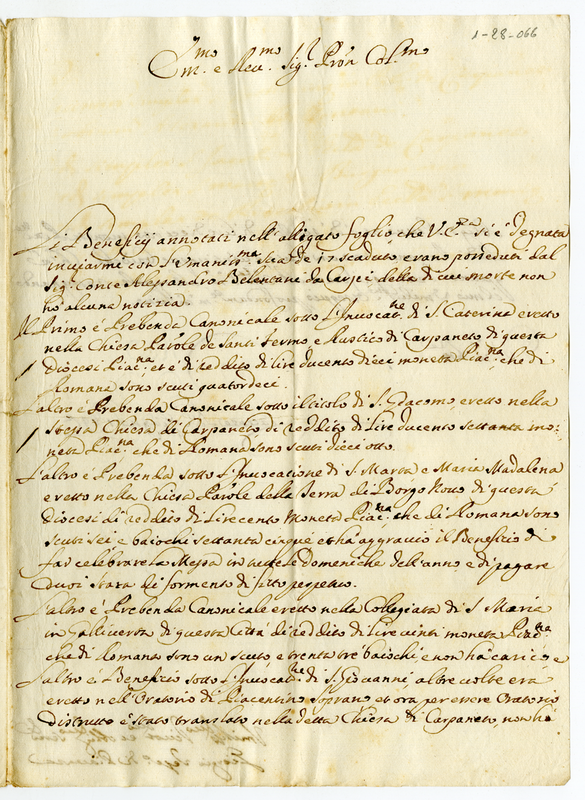 1-28-066
Jmo
m. e Rev.mo Sig.r Prōn Col.mo
Li Beneficij annotati nell'allegato foglio, che V.S. si è degnata
inviarmi con de 17 scaduto, erano posseduti dal
Sig.r Conte Alessandro Belentani da Carpi della di cui morte non
ho alcuna notizia.
Il Primo è Prebenda Canonicale sotto l'Invocat.ne di S. Caterina eretto
nella Chiesa Parōle de Santi Fermo, e Rustico di Carpaneto di questa
Diocesi Piac.na, et è di reddito di lire ducento dieci moneta Piac.na, che di
Romana sono scuti quatordeci.
L'altro è Prebenda Canonicale sotto il titolo di S. Giacomo, eretto nella
stessa Chiesa di Carpaneto di reddito di Lire ducento settanta mo=
neta Piac.na che di Romana sono scuti dieciotto.
L'altro è Prebenda sotto l'Invocatione di S. Marta e Maria Madalena
eretto nella Chiesa Parōle della Terra di Borgo Novo di questa
Diocesi di reddito di Lire cento Moneta Piac.na che di Romana sono
scuti sei e baiochi settanta cinque et ha aggravio il Beneficio di
far celibrare la Messa in tutte le domeniche dell'anno e di pagare
duoi stara di formento di fitto perpetuo.
L'altro è Prebenda Canonicale eretto nella Collegiata di S. Maria
in Galliverta di questa Città di reddito di lire vinti moneta Piac.na
che di Romana sono un scuto e trenta tre baiochi, e non ha carico e
L'altro è Beneficio sotto l'Invocat.ne di S. Giovanni, altre volte era
eretto nell'Oratorio di Piacentino Soprano et ora per essere Oratorio
distrutto è stato translato nella detta Chiesa di Carpaneto, non ha